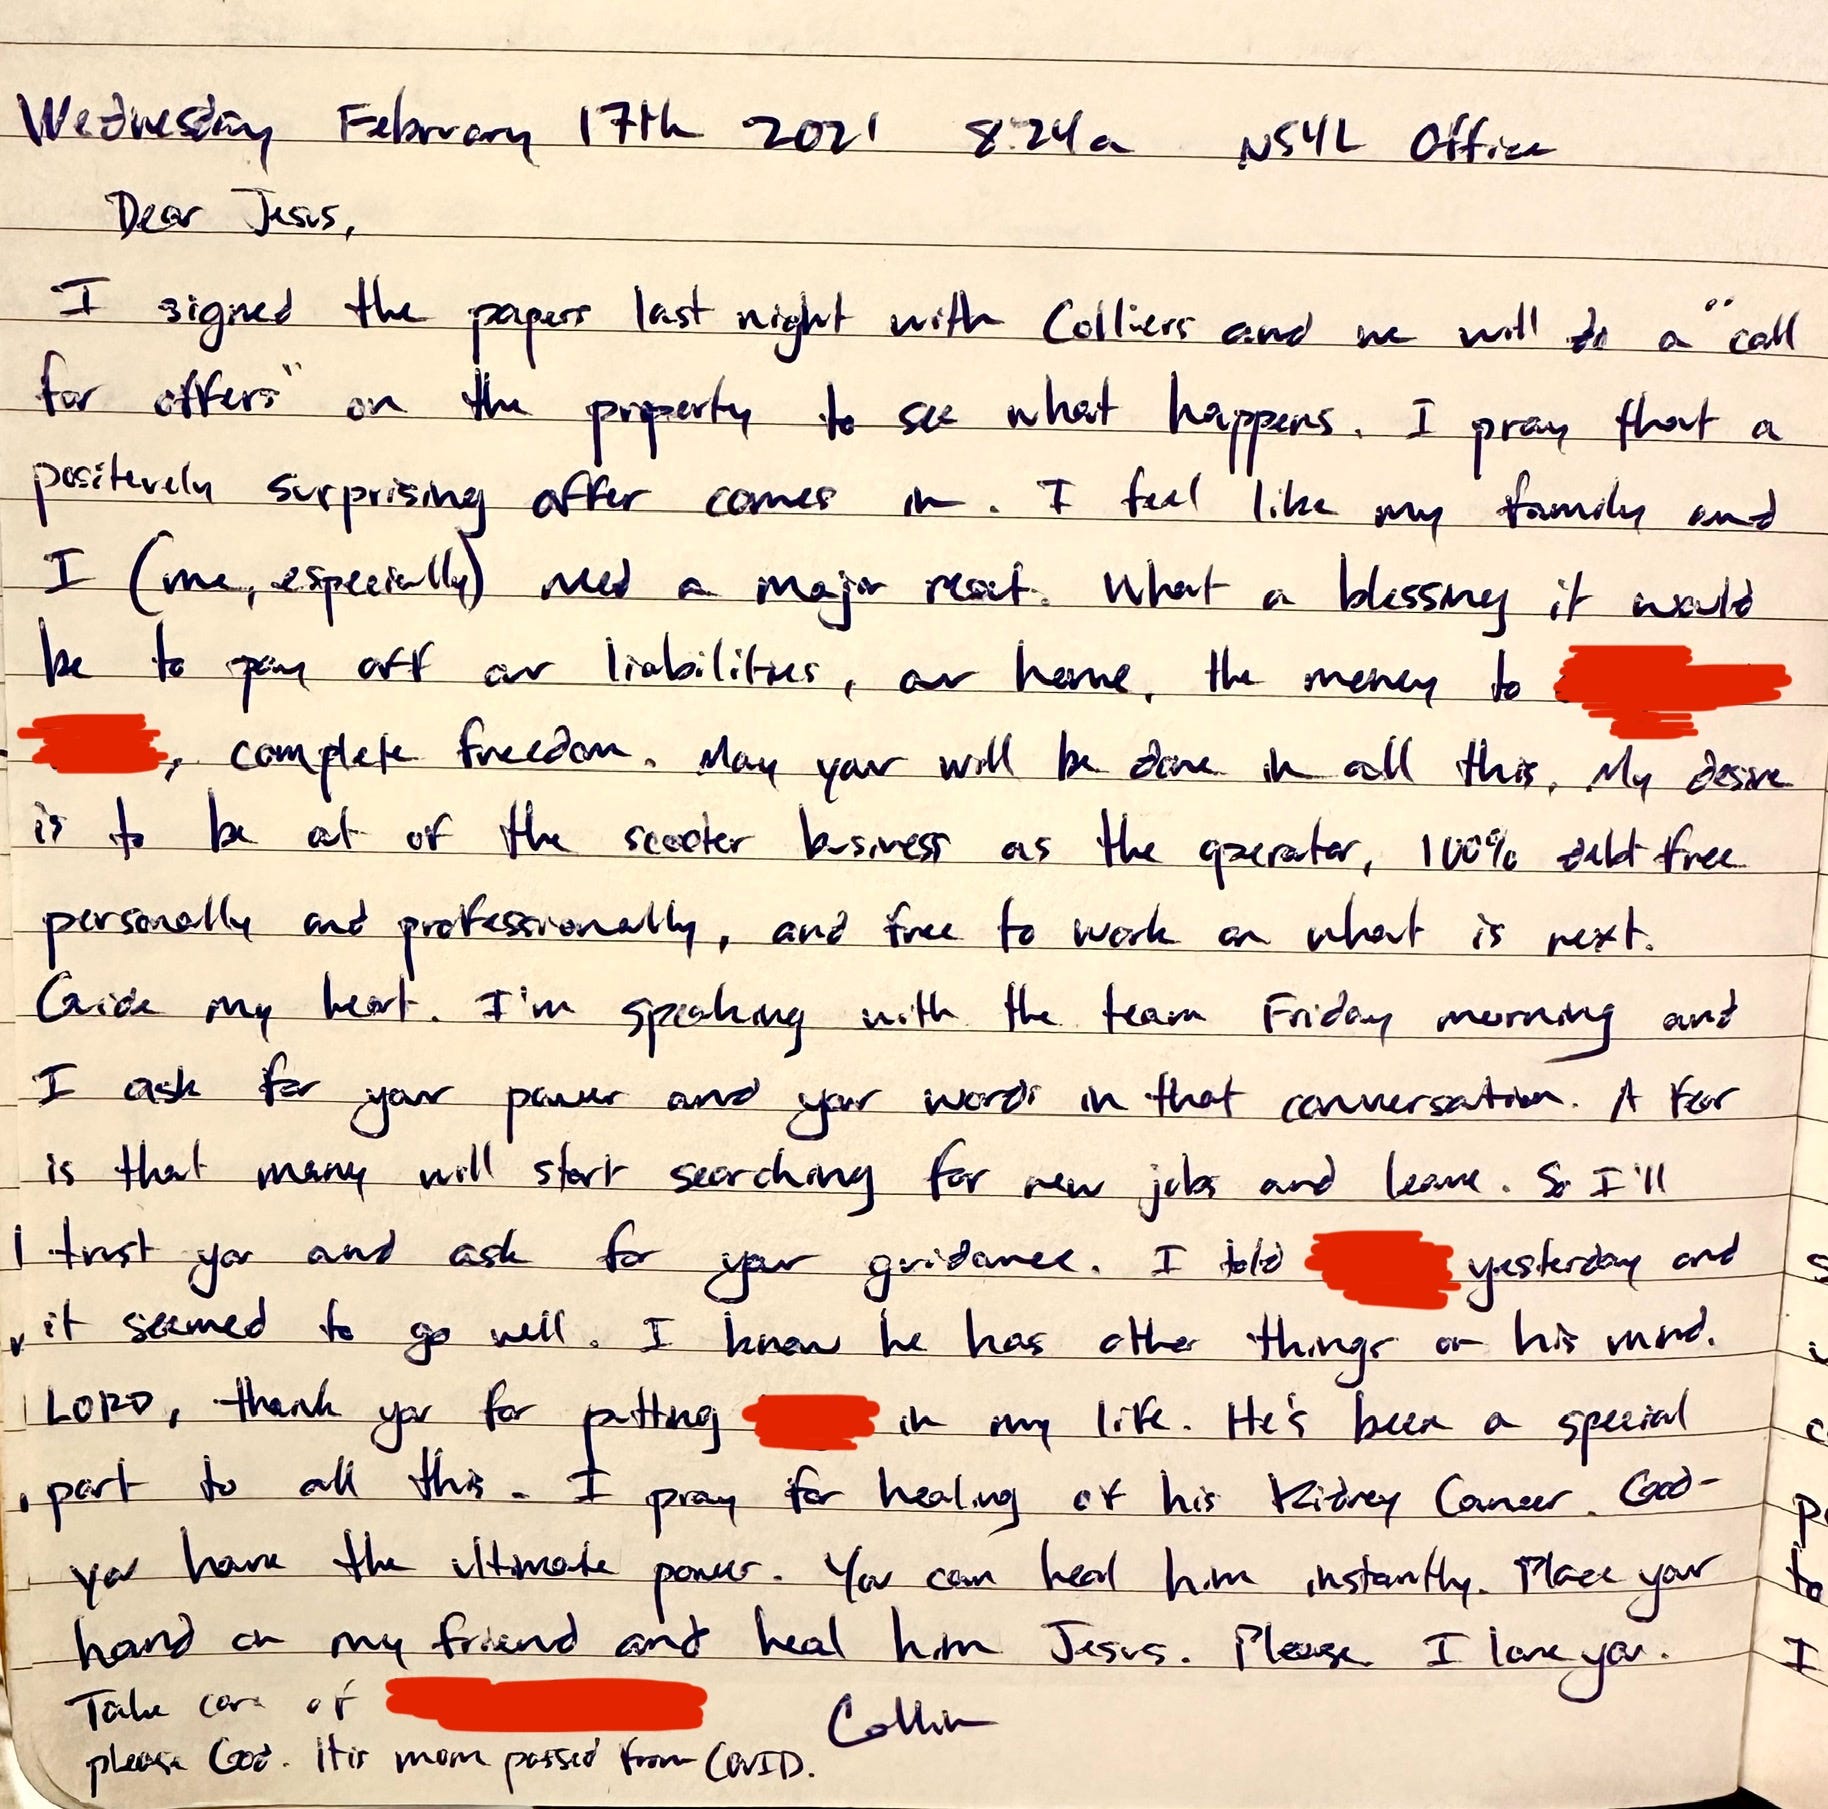 Wednesday February 17th 2021 8:24a NS4L Office
Dear Jesus,
I signed the papers last night with Colliers and we will do a "call
for offers" on the property to see what happens. I pray that a
positevely surprising offer comes in. I feel like my family and
I (me, especially) need a major reset. What a blessing it would
be to pay off our liabilities, our home, the money to
, complete freedom. May your will be done in all this. My desire
is to be out of the scooter business as the operator, 100% debt free
personally and professionally, and free to work on what is next.
Guide my heart. I'm speaking with the team Friday morning and
I ask for your power and your words in that conversation. A fear
is that many will start searching for new jobs and leave. So I'll
trust you and ask for your guidance. I told yesterday and
it seemed to go well. I know he has other things on his mind.
LORD, thank you for putting in my life. He's been a special
part to all this. I pray for healing of his Kidney Cancer. God-
you have the ultimate power. You can heal him instantly. Place your
hand on my friend and heal him Jesus. Please. I love you.
Take care of
Collin
please God. His mom passed from COVID.